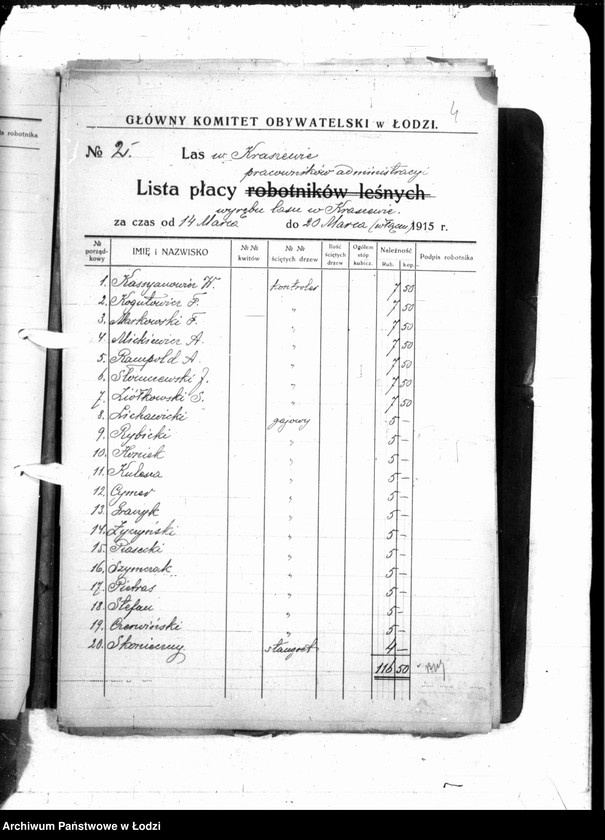 4
GŁÓWNY KOMITET OBYWATELSKI w ŁODZI.
is robotnika
№ 2. Las w Kraszewie
pracowników administracyi
Lista płacy robotników leśnych
wyrębu lasu w Kraszewie.
za czas od 14 Marca do 20 Marca (włącz) 1915 r.
№ porząd-kowy IMIĘ i NAZWISKO №№ kwitów №№ ściętych drzew Ilość ściętych drzew Ogółem stóp kubicz. Należność Rub. kop. Podpis robotnika
1. Kassyanowicz W. kontroler 7 50
2. Kogutowicz F. " 7 50
3. Markowski F. " 7 50
4. Mickiewicz A. " 7 50
5. Rampold A. " 7 50
6. J. " 7 50
7. Ziółkowski S. " 7 50
8. Lichawicki gajowy 5 —
9. Rybicki " 5 —
10. Koniek " 5 —
11. Kulesza " 5 —
12. Cymer " 5 —
13. " 5 —
14. Życzyński " 5 —
15. Piasecki " 5 —
16. Szymczak " 5 —
17. Pietras " 5 —
18. Stefan " 5 —
19. Czerwiński " 5 —
20. Skonieczny 4 —
116 50
Archiwum Państwowe w Łodzi